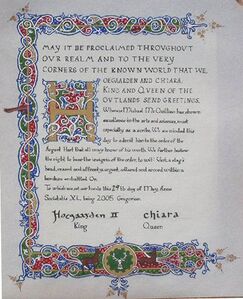 MAY IT BE PROCLAIMED THROUGHOUT
OUR REALM AND TO THE VERY
CORNERS OF THE KNOWN WORLD THAT WE,
HOEGAARDEN AND CHIARA,
KING AND QUEEN OF THE
OUTLANDS SEND GREETINGS.
Whereas Michael McQuillan has shown
excellence in the arts and sciences, most
especially as a scribe. We are minded this
day to admit him to the order of the
Argent Hart that all may know of his worth. We further bestow
the right to bear the insignia of the order, to wit: Vert, a stag's
head, erased and affronty, argent, attired and orced within a
bordure embattled Or.
To which we set our hands this 29th day of May, Anno
Societatis XL, being 2005 Gregorian.
Hoegaarden II chiara
King Queen